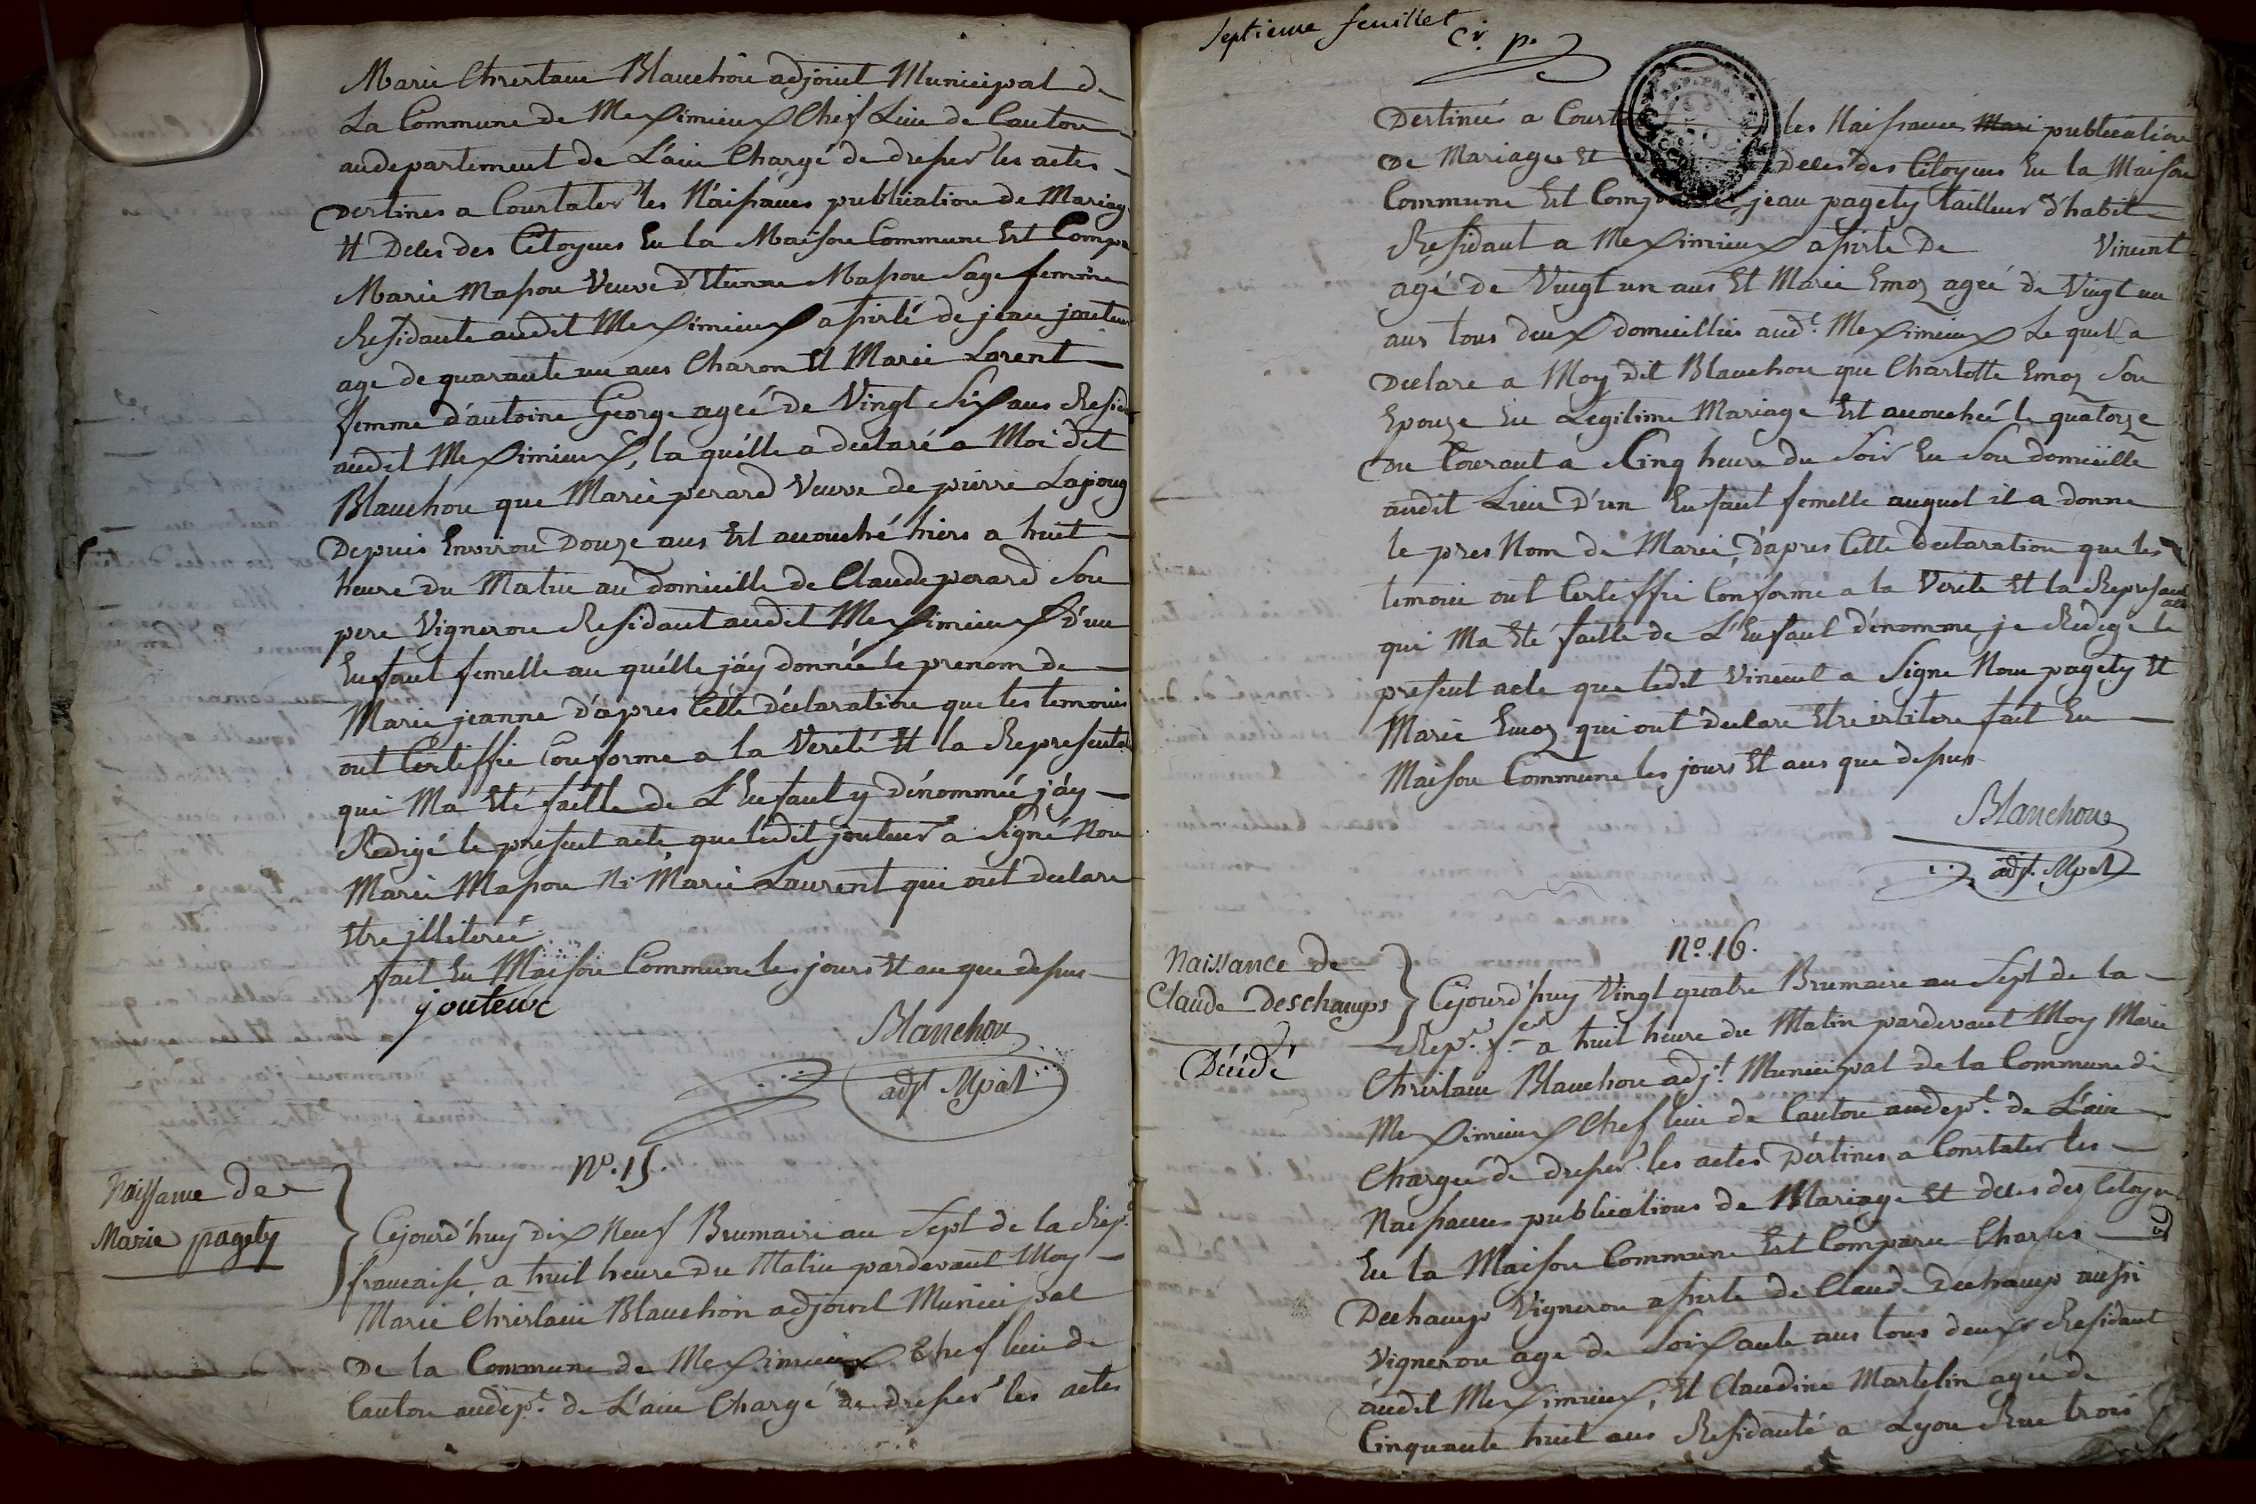 Marie Chrestain Blanchon adjoint Municipal de
La Commune de Meximieux Chef Lieu de Canton
au departement de L'ain Chargé de dresser les actes
Destines a Constater les Naissances publication de Mariag
Et Deces des Citoyens En la Maison Commune Est Compa
Marie Masson Veuve d'Etienne Masson Sage femme
Residante audit Meximieux assisté de jean jouteur
age de quarante un ans Charon Et Marie Lorent
femme d'antoine George ageé de Vingt Six ans Resid
audit Meximieux, la quelle a declaré a Moi dit
Blanchon que Marie perard Veuve de pierre Lajoug
Depuis Environ Douze ans Est acouché hiers a huit
heure du Matin au domicille de Claude perard Son
pere Vigneron Residant audit Meximieux D'un
Enfant femelle au quelle j'ay donnée le prenom de
Marie jeanne d'apres Cette déclaration que les temoins
ont Certiffie Conforme a la Verité Et la Represent
qui Ma Eté faitte de L'Enfant y dénommé j'ay
Redigé le present acte que ledit jouteur a Signé Non
Marie Masson Ni Marie Laurent qui ont declare
Etre illiteré
fait En Maison Commune les jours Et an que depus
jouteur
Blanchon
adjt Mpal
No. 15.
Naissance de
Marie pagety
Cejourd'huy dix Neuf Brumaire an Sept de la Rep.
francaise, a huit heure du Matin pardevant Moy
Marie Chrestain Blanchon adjoint Municipal
De la Commune de Meximieux Chef lieu de
Canton au dept. de L'ain Chargé de dresser les actes
Septieme feuillet
Destinés a Const les Naissances Mari publication
De Mariages Et Deces des Citoyens En la Maison
Commune Est Comp jean pagety tailleur d'habit
Residant a Meximieux assiste De Vincent
agé de Vingt un ans Et Marie Emoz ageé de Vingt un
ans tous deux domicillie aud. Meximieux Le quel a
Declare a Moy dit Blanchon que Charlotte Emoz Son
Epouze En Legitime Mariage Est acouchée le quatorze
Du Courant a Cinq heure du Soir En Son domicille
audit Lieu D'un Enfant femelle auquel il a donne
le pres Nom de Marie, d'apres Cette declaration que les
temoin ont Certiffie Conforme a la Verite Et la Represent
qui Ma Eté faitte de L'Enfant dénomme, je Redige le
present acte que ledit Vincent a Signe Non pagety Et
Marie Emoz qui ont declare Etre ilitere fait En
Maison Commune les jours Et ans que depus
Blanchon
adjt. Mpal
No. 16.
Naissance de
Claude Deschamps
Décidé
Cejourd'huy Vingt quatre Brumaire an Sept de la
Rep. f. a huit heure du Matin pardevant Moy Marie
Chrestain Blanchon adjt. Municipal de la Commune de
Meximieux Chef lieu de Canton au dept. de L'ain
Chargé de dresser les actes Déstines a Constater les
Naissances publications de Mariage Et deces des Citoyen
En la Maison Commune Est Comparu Charles
Dechamp Vigneron assiste de Claude Dechamp aussi
Vigneron age de Soixante ans tous deux Residant
audit Meximieux, Et Claudine Martelin ageé de
Cinquante huit ans Residanté a Lyon Rue trois